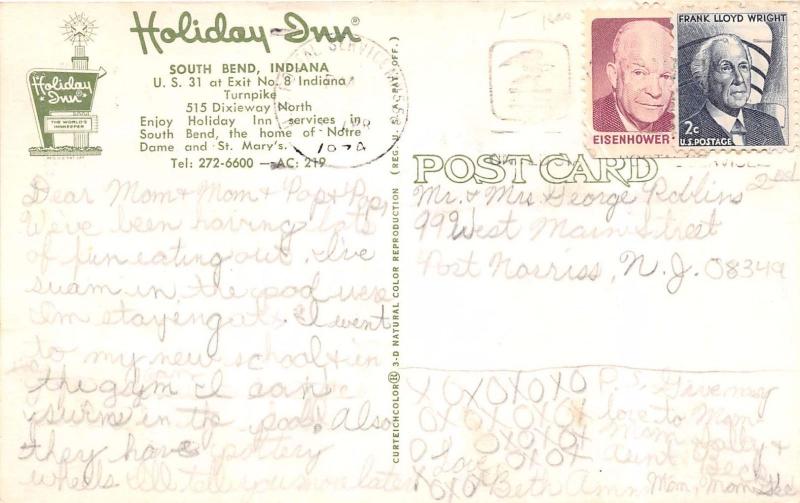 Holiday Inn®
SOUTH BEND, INDIANA
U. S. 31 at Exit No. 8 Indiana
Turnpike
515 Dixieway North
Enjoy Holiday Inn services in
South Bend, the home of Notre
Dame and St. Mary's.
Tel: 272-6600 — AC: 219
Holiday
Inn
THE WORLD'S
INNKEEPER
Dear Mom + Mom + Pop + Pop,
We've been having lots
of fun eating out. I've
swam in the pool were
I'm staying at. I went
to my new school + in
the gym I can
swim in the pool. Also
they have pottery
wheels I'll tell you more later
CURTEICHCOLOR® 3-D NATURAL COLOR REPRODUCTION (REG. U. S. A. PAT. OFF.)
EISENHOWER
FRANK LLOYD WRIGHT
2c
U.S. POSTAGE
POST CARD
Mr. + Mrs. George Robbins
99 West Main Street
Port Norriss, N.J. 08349
XOXOXOXO
OXOXOXOX
OXOXOXO
O Love
OXO Beth Ann
P.S. Give my
love to Mom
Mom
+
Aunt
Mom, Mom